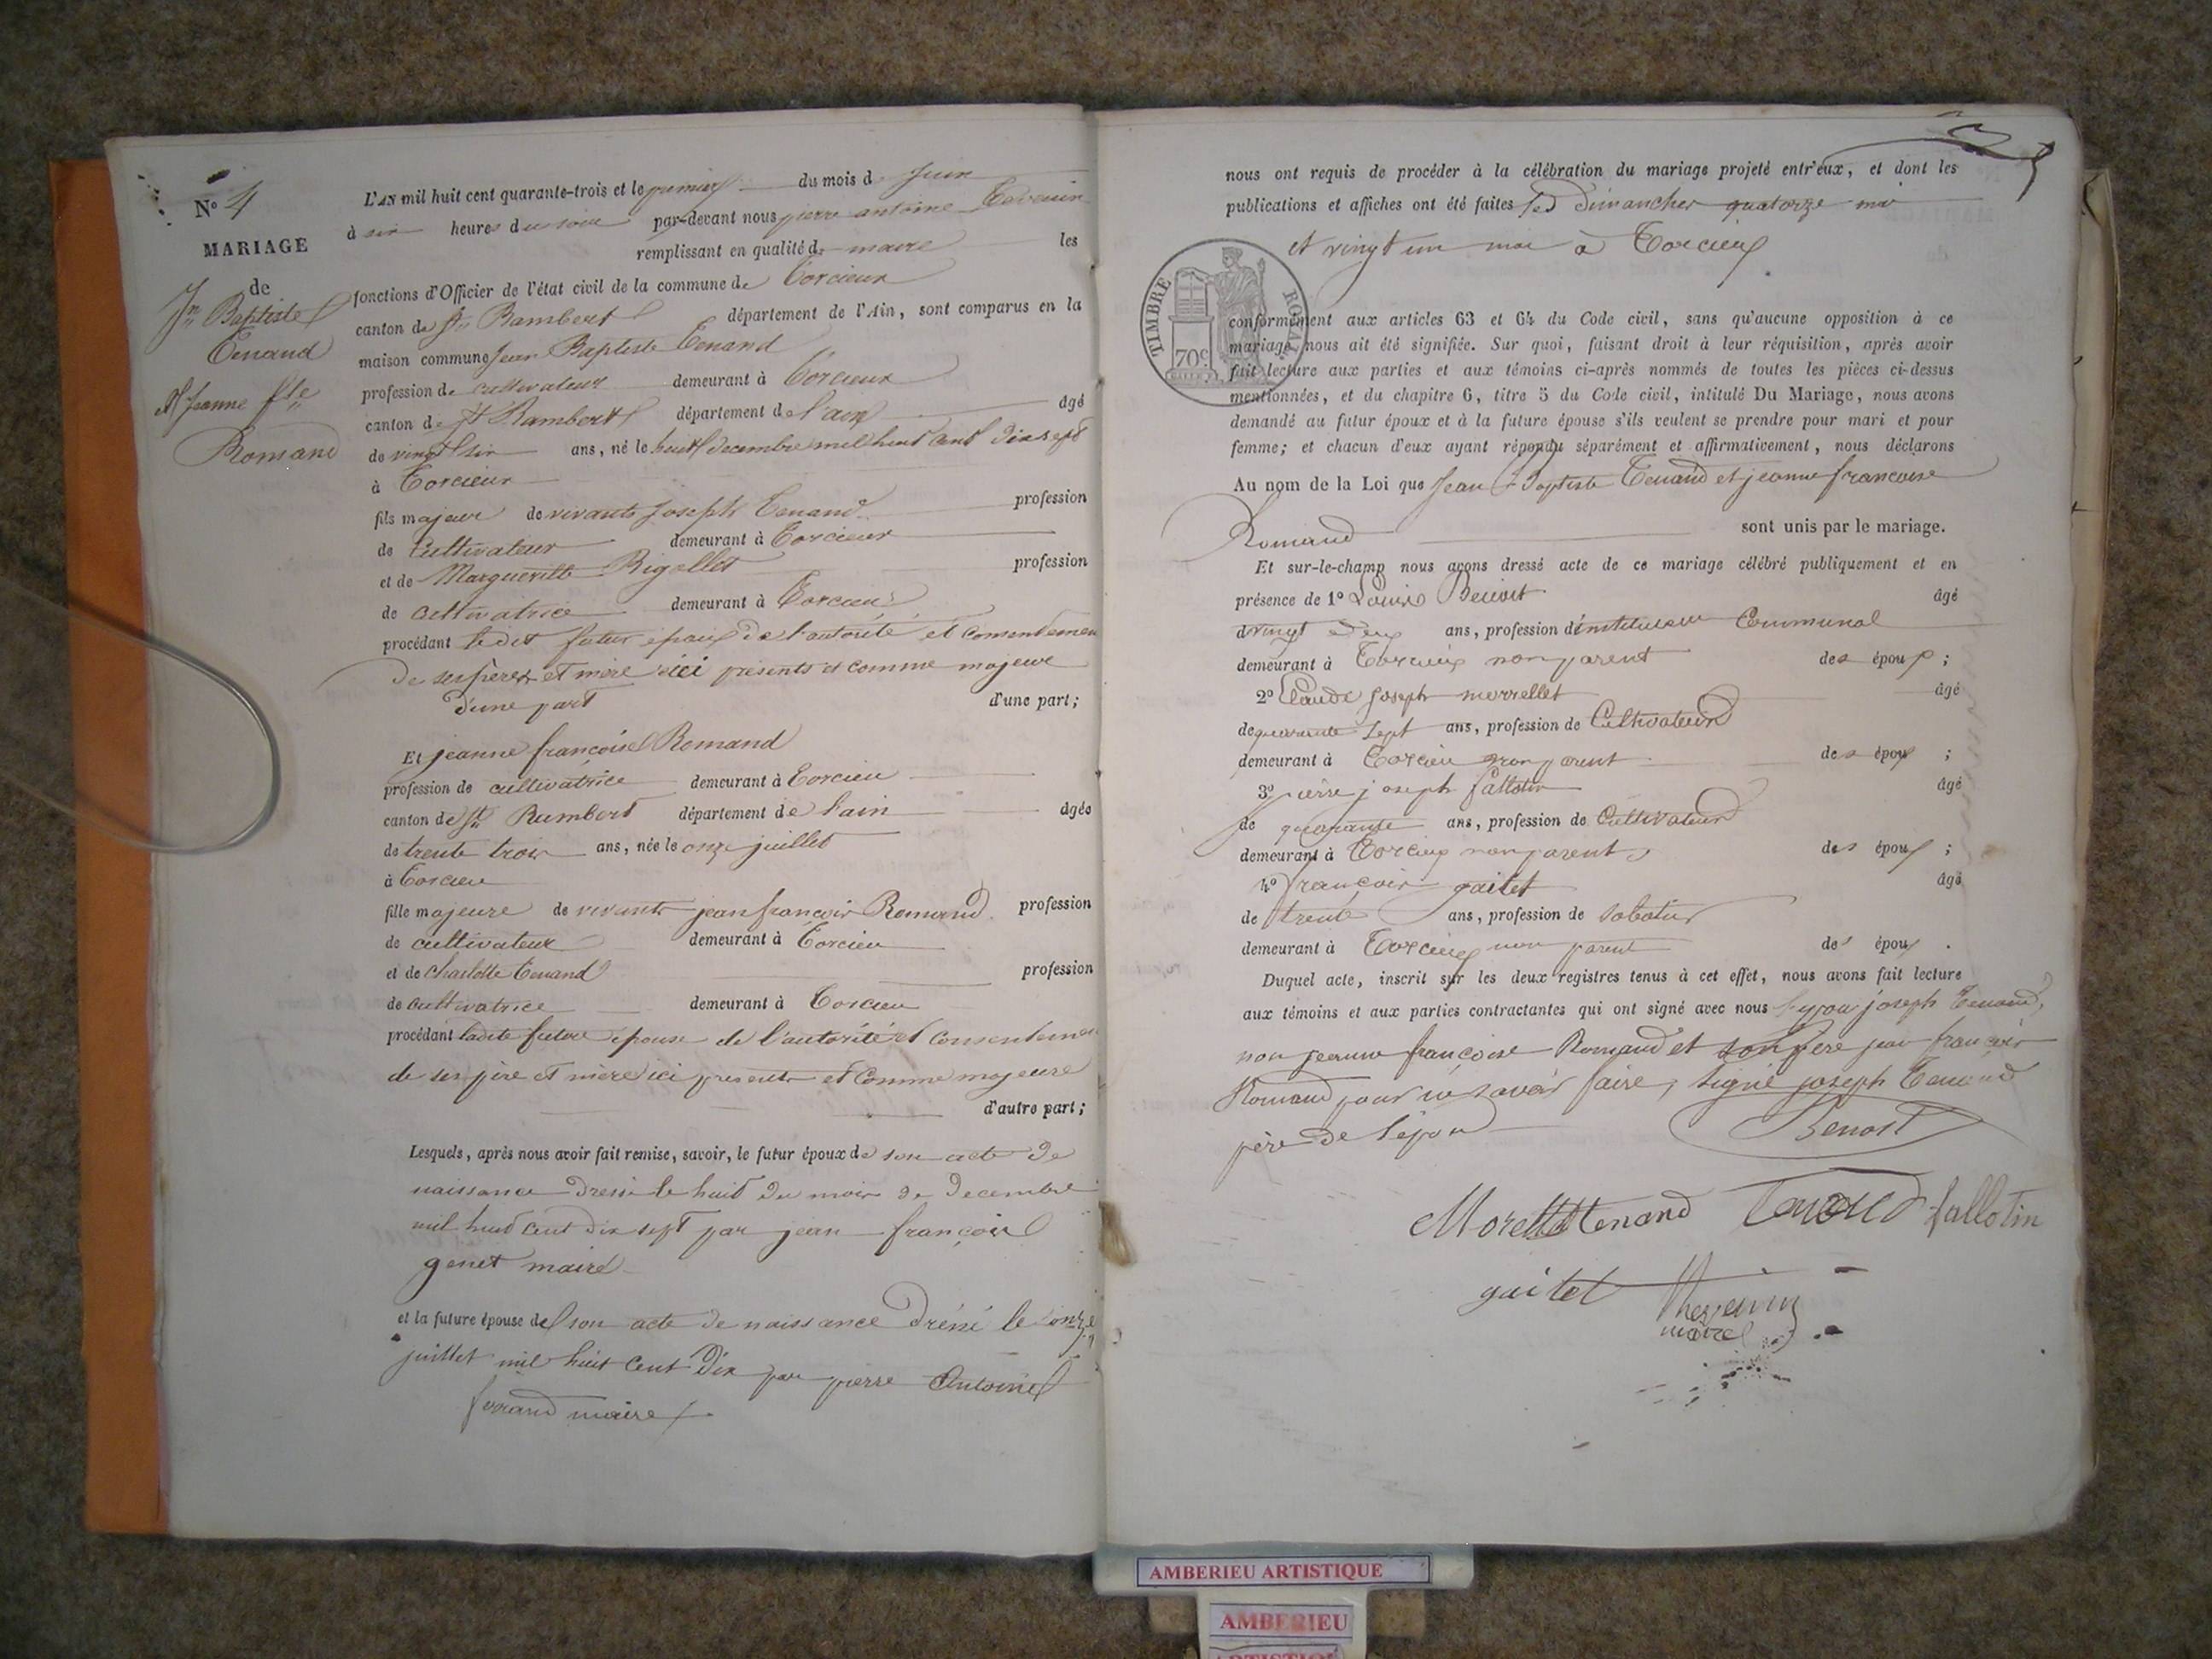 N° 4
MARIAGE
de
Jn Baptiste
Tenand
et Jeanne fse
Romand
L'AN mil huit cent quarante-trois et le premier du mois de Juin
à six heures du soir par-devant nous pierre antoine Tevenin
remplissant en qualité de maire les
fonctions d'Officier de l'état civil de la commune de Torcieux
canton de St Rambert département de l'Ain, sont comparus en la
maison commune Jean Baptiste Tenand
profession de cultivateur demeurant à Torcieux
canton de St Rambert département de l'ain âgé
de vingt six ans, né le huit decembre mil huit cent dix sept
à Torcieux
fils majeur de vivants Joseph Tenand profession
de Cultivateur demeurant à Torcieux
et de Margueritte Rigollet profession
de cultivatrice demeurant à Torcieu
procédant ledit futur époux de l'autorité et consentement
de ses père et mère ici présents et comme majeur
d'une part d'une part;
Et jeanne françoise Romand
profession de cultivatrice demeurant à Torcieu
canton de St Rambert département de l'ain âgée
de trente trois ans, née le onze juillet
à Torcieu
fille majeure de vivants jean françois Romand profession
de cultivateur demeurant à Torcieu
et de charlotte Tenand profession
de cultivatrice demeurant à Torcieu
procédant ladite future épouse de l'autorité et consentement
de ses père et mère ici presents et Comme majeure
d'autre part;
Lesquels, après nous avoir fait remise, savoir, le futur époux de son acte de
naissance dressé le huit du mois de decembre
mil huit cent dix sept par jean françois
genet maire
et la future épouse de son acte de naissance dréssé le onze
juillet mil huit cent dix par pierre Antoine
ferrand maire
nous ont requis de procéder à la célébration du mariage projeté entr'eux, et dont les
publications et affiches ont été faites les dimanches quatorze mai
et vingt un mai à Torcieux
TIMBRE ROYAL
70c
conformément aux articles 63 et 64 du Code civil, sans qu'aucune opposition à ce
mariage nous ait été signifiée. Sur quoi, faisant droit à leur réquisition, après avoir
fait lecture aux parties et aux témoins ci-après nommés de toutes les pièces ci-dessus
mentionnées, et du chapitre 6, titre 5 du Code civil, intitulé Du Mariage, nous avons
demandé au futur époux et à la future épouse s'ils veulent se prendre pour mari et pour
femme; et chacun d'eux ayant répondu séparément et affirmativement, nous déclarons
Au nom de la Loi que Jean Baptiste Tenand et jeanne francoise
Romand sont unis par le mariage.
Et sur-le-champ nous avons dressé acte de ce mariage célébré publiquement et en
présence de 1° Louis Benoit âgé
de vingt deux ans, profession d'instituteur Communal
demeurant à Torcieux non parent des époux;
2° Claude joseph morrellet âgé
de quarante sept ans, profession de Cultivateur
demeurant à Torcieu non parent des époux;
3° pierre joseph fallotin âgé
de quarante ans, profession de Cultivateur
demeurant à Torcieux non parent des époux;
4° françois gaitet âgé
de trente ans, profession de sabotier
demeurant à Torcieux non parent des époux.
Duquel acte, inscrit sur les deux registres tenus à cet effet, nous avons fait lecture
aux témoins et aux parties contractantes qui ont signé avec nous joseph Tenand,
non jeanne françoise Romand et son père jean françois
Romand pour ne savoir faire, signé joseph Tenand
père de l'époux
Benoit
Morellet tenand Tenand fallotin
gaitet Thevenin
maire
AMBERIEU ARTISTIQUE
AMBERIEU
ARTISTIQUE